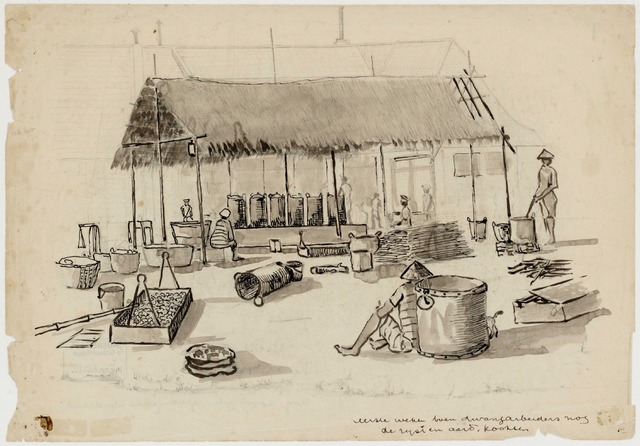 eerste weken toen dwangarbeiders nog
de rijst en aard. kookten